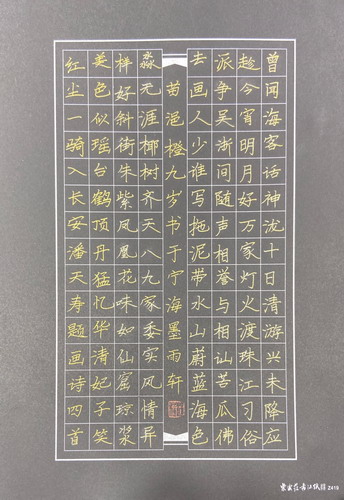 曾闻海客话神泷十日清游兴未降应
趁今宵明月好万家灯火渡珠江习俗
派争吴浙间随声相誉与相讪苦瓜佛
去画人少谁写拖泥带水山蔚蓝海色
苗浥橙九岁书于宁海墨雨轩
淼无涯椰树齐天八九家委实风情异
样好斜街朱紫凤凰花味如仙窟琼浆
美色似瑶台鹤顶丹猛忆华清妃子笑
红尘一骑入长安潘天寿题画诗四首
Z416